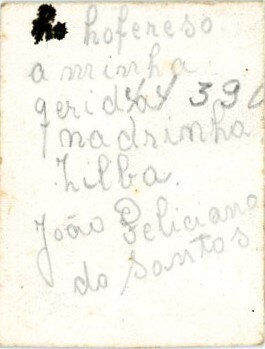 hofereso
a minha
gerida
madrinha
Zilba.
João Feliciano
do Santos